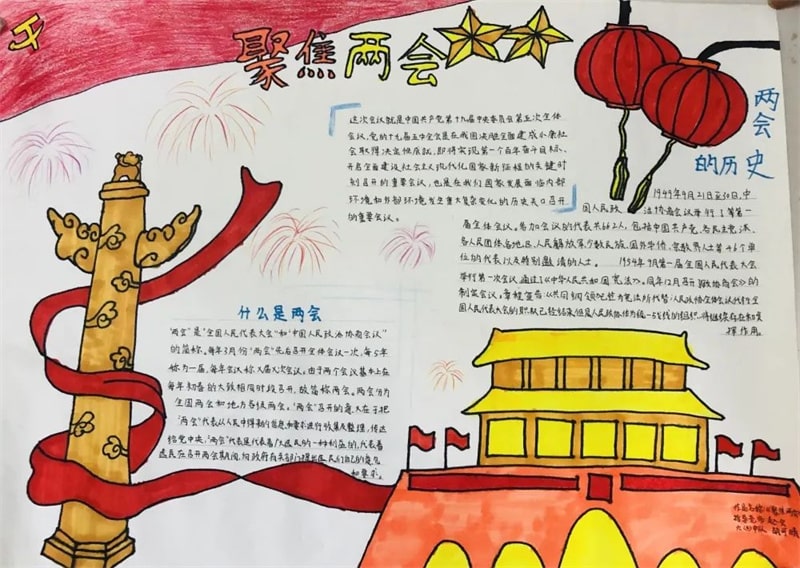 聚焦两会
这次会议就是中国共产党第十九届中央委员会第五次全体
会议,党的十九届五中全会是在我国决胜全面建成小康社
会取得决定性成就,即将实现第一个百年奋斗目标、
开启全面建设社会主义现代化国家新征程的关键时
刻召开的重要会议,也是在我们国家发展面临内部
环境和外部环境发生重大复杂变化的历史关口召开
的重要会议。
两会
的历史
1949年9月21日至30日,中
国人民政 治协商会议举行了第一
届全体会议。参加会议的代表共662人,包括中国共产党、各民主党派、
各人民团体、各地区、人民解放军、少数民族、国外华侨、宗教界人士等46个单
位的代表以及特别邀请的人士。 1954年9月第一届全国人民代表大会
举行第一次会议通过了《中华人民共和国宪法》。同年12月召开
的制定会议。
国人民代表大会的职权已经结束但是人民政协作为统一战线的组织将继续存在和发
挥作用。
什么是两会
“两会”是“全国人民代表大会”和“中国人民政治协商会议”
的简称。每年3月份“两会”先后召开全体会议一次,每5年
称为一届,每年会议称X届X次会议。由于两个会议基本上在
每年初春的大致相同时段召开,故简称两会。两会分为
全国两会和地方各级两会。“两会”召开的意义在于把
“两会”代表从人民中得到的信息和要求进行收集及整理,传达
给党中央,“两会”代表是代表着广大选民的一种利益的,代表着
选民在召开两会期间,向政府有关部门提出选民们自己的意见
和要求。
作品名称:《聚焦两会》